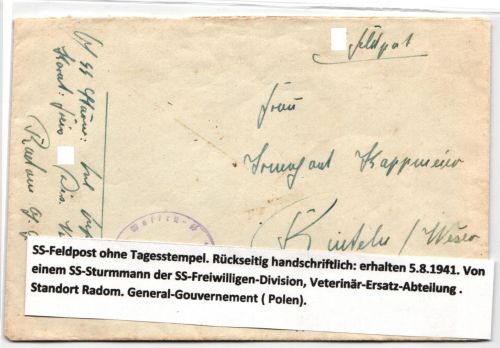 Feldpost
Frau
Irmgard Kappmeier
Rinteln / Weser
Waffen-
Radom
SS-Feldpost ohne Tagesstempel. Rückseitig handschriftlich: erhalten 5.8.1941. Von
einem SS-Sturmmann der SS-Freiwilligen-Division, Veterinär-Ersatz-Abteilung .
Standort Radom. General-Gouvernement ( Polen).